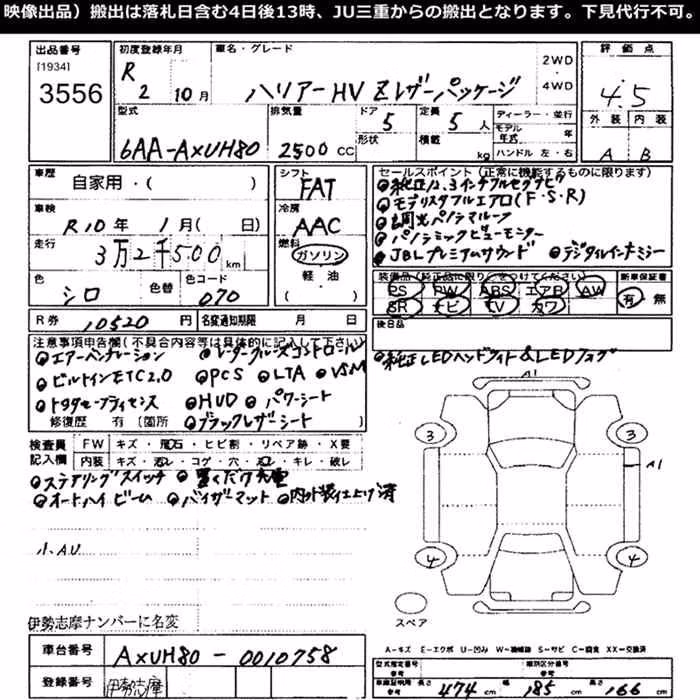 映像出品）搬出は落札日含む4日後13時、JU三重からの搬出となります。下見代行不可。
出品番号 [1934] 3556
初度登録年月 R2 10月
車名・グレード ハリアーHV Zレザーパッケージ 2WD・4WD
評価点 4.5
外装 A 内装 B
型式 6AA-AXUH80
排気量 2500 CC
ドア 5 形状
定員 5人 積載 kg
ディーラー・並行
モデル年式 年
ハンドル 左・右
車歴 自家用・( )
車検 R10年 1月( 日)
走行 3万2千500 km
色 シロ 色替 色コード 070
シフト FAT
冷房 AAC
燃料 ガソリン 軽・油 ( )
セールスポイント (正常に機能するものに限ります)
●純正12.3インチフルセグナビ
●モデリスタフルエアロ(F・S・R)
●調光パノラマルーフ
●パノラミックビューモニター
●JBLプレミアムサウンド ●デジタルインナーミラー
装備品(純正品に限り○をつけてください)
PS PW ABS エアB AW
SR ナビ TV カワ
新車保証書 有・無
後日品
R券 10520円 名変通知期限 月 日
注意事項申告欄(不具合内容等は具体的に記入して下さい)
●エアーベンチレーション ●レーダークルーズコントロール
●ビルトインETC2.0 ●PCS ●LTA ●VSM
●トヨタセーフティセンス ●HUD ●パワーシート
修復歴 有 (箇所 ●ブラックレザーシート
●純正LEDヘッドライト&LEDフォグ
検査員記入欄 FW キズ・飛石・ヒビ割・リペア跡・X要
内装 キズ・汚レ・コゲ・穴・凹レ・キレ・破レ
●ステアリングスイッチ ●置くだけ充電
●オートハイビーム ●バイザーマット ●内外装仕上げ済
小AU
伊勢志摩ナンバーに名変
A1
3 3
A1
4 4
スペア
A-キズ E-エクボ U-凹み W-補修跡 S-サビ C-腐食 XX-交換済
車台番号 AXUH80-0010758
登録番号 伊勢志摩
型式指定番号 参考 類別区分番号 参考
車庫証明用 参考 長さ 474 cm 幅 185 cm 高さ 166 cm